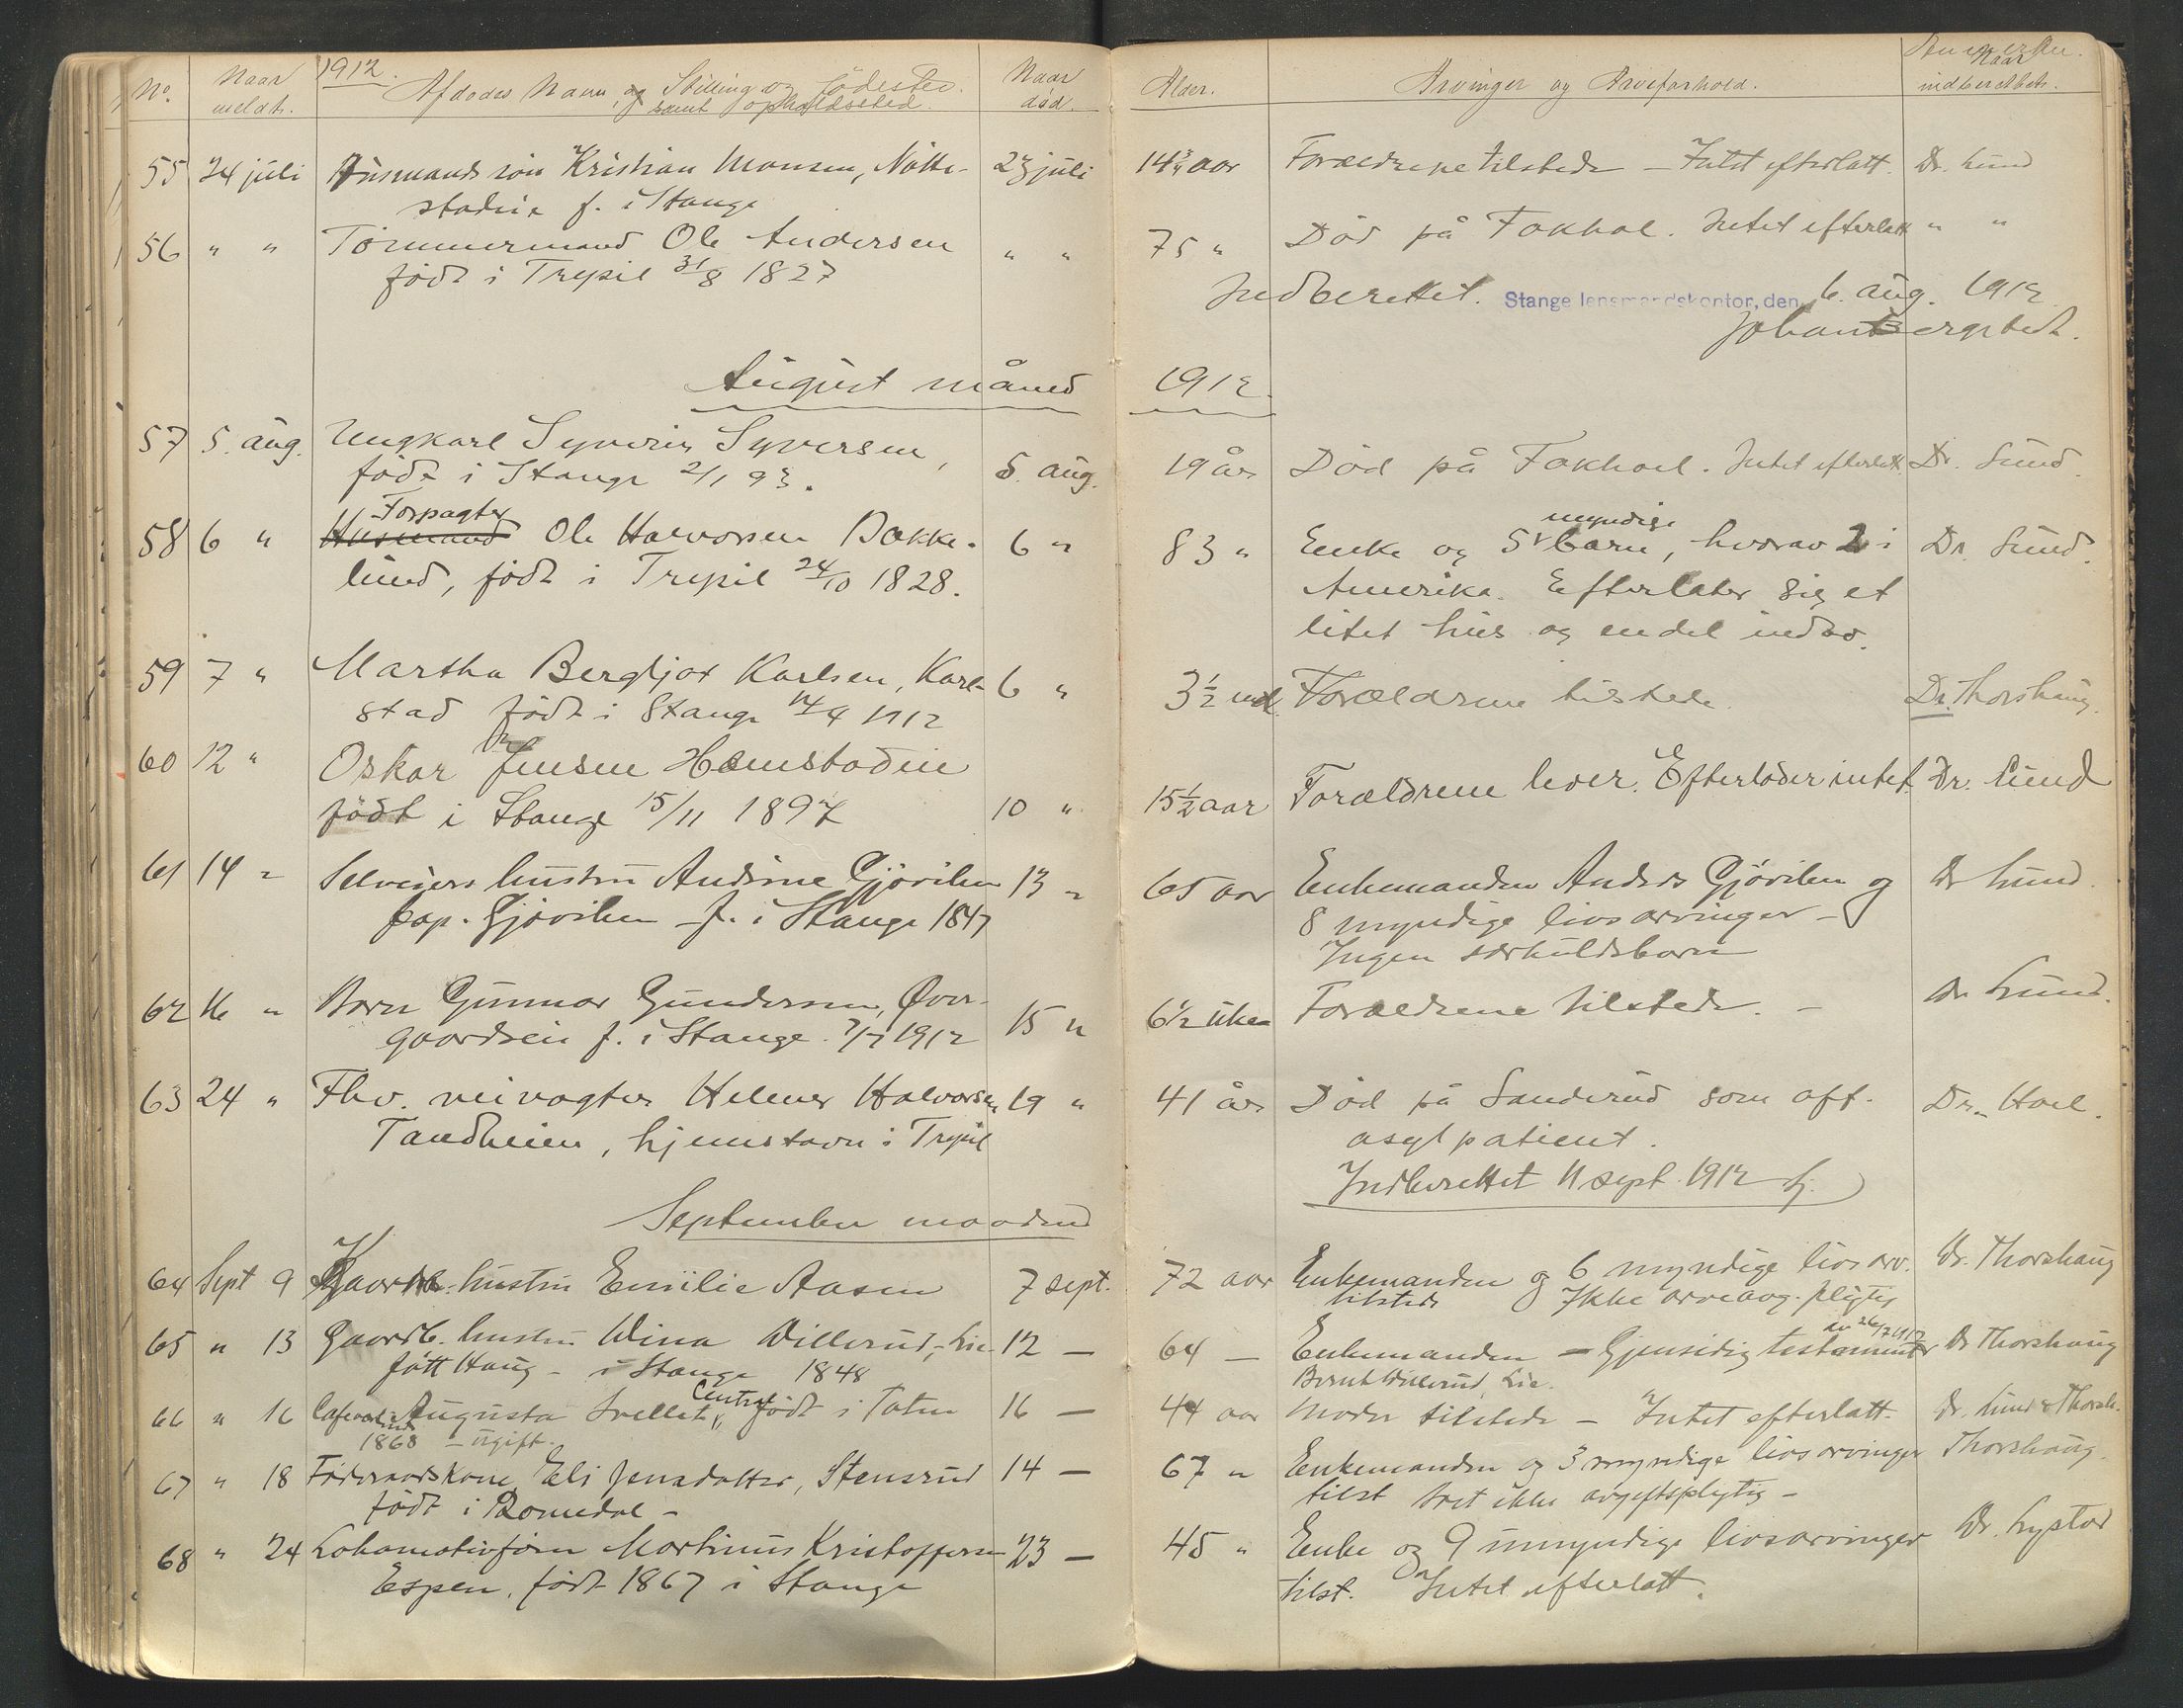 1912.
No. Naar meldt. Afdødes Navn, og Stilling og Fødested. samt opholdssted. Naar død. Alder. Arvinger og Arveforhold. Naar indberettet.
55 24 juli Husmands søn Kristian Monsen, Nötte- 23 juli 14 3/4 aar Forældrene tilstede – Intet efterlatt. Dr. Lund
stadeie f. i Stange
56 " " Tømmermand Ole Andersen " " 75 " Død på Fokhol. Intet efterlatt " "
født i Trysil 31/8 1827
Indberettet. Stange lensmandskontor, den 6. aug. 1912
Johan Bergstedt.
August måned 1912.
57 5. aug. Ungkarl Syverin Syversen, 5. aug. 19 år Død på Fokhoel. Intet efterlatt. Dr. Lund.
født i Stange 2/1 93.
Forpagter
58 6 " Husmand Ole Halvorsen Bakke- 6 " 83 " Enke og 5 myndige barn, hvorav 2 i Dr. Lund.
lund, født i Trysil 24/10 1828. Amerika. Efterlater sig et
litet hus og en del indbo.
59 7 " Martha Bergljot Karlsen, Karl- 6 " 3 1/2 md. Forældrene tilstede. Dr. Thorshaug.
stad født i Stange 14/4 1912
60 12 " Oskar Jensen Hemstadeie
født i Stange 15/11 1897 10 " 15 1/2 aar Forældrene lever. Efterlader intet. Dr. Lund
61 14 " Selveiers hustru Andrine Gjøvilen 13 " 65 aar Enkemanden Anders Gjøvilen og Dr Lund.
pop. Gjøvilen – f. i Stange 1847 8 myndige livsarvinger –
Ingen særkuldsbarn
62 16 " Barn Gunnar Gundersen, Øver- 15 " 6 1/2 uken Forældrene tilstede. – Dr. Lund.
gaardseie f. i Stange 1/7 1912
63 24 " Fhv. veivogter Helmer Halvorsen 19 " 41 år Død på Sanderud som off. Dr. Hoel.
Tandheien, hjemstavn i Trysil asylpatient.
Indberettet 11 sept. 1912
September maaned
64 Sept 9 Kaarb. hustru Emilie Aasen 7 sept. 72 aar Enkemanden og 6 myndige livsarv. Dr. Thorshaug
tilstede Ikke arveavg. pligtig
65 " 13 Gaardb. hustru Wina Willerud, Lie 12 – 64 – Enkemanden – Gjensidig testament av 26/7 1912 Dr Thorshaug
født Haug – i Stange 1848 Bernt Willerud, Lie.
66 " 16 Augusta Central født i Toten 16 – 44 aar Moder tilstede – Intet efterlatt. Dr. Lund & Thorsh.
1868 – ugift.
67 " 18 Føderaadskone Eli Jensdatter, Stensrud 14 – 67 " Enkemanden og 3 myndige livsarvinger Thorshaug.
født i Romedal – tilst boet ikke avgiftspligtig –
68 " 24 Lokomotivfører Martinus Kristoffersen 23 – 45 " Enke og 9 umyndige livsarvinger Dr. Lystad
Espen, født 1867 i Stange tilst. Intet efterlatt.